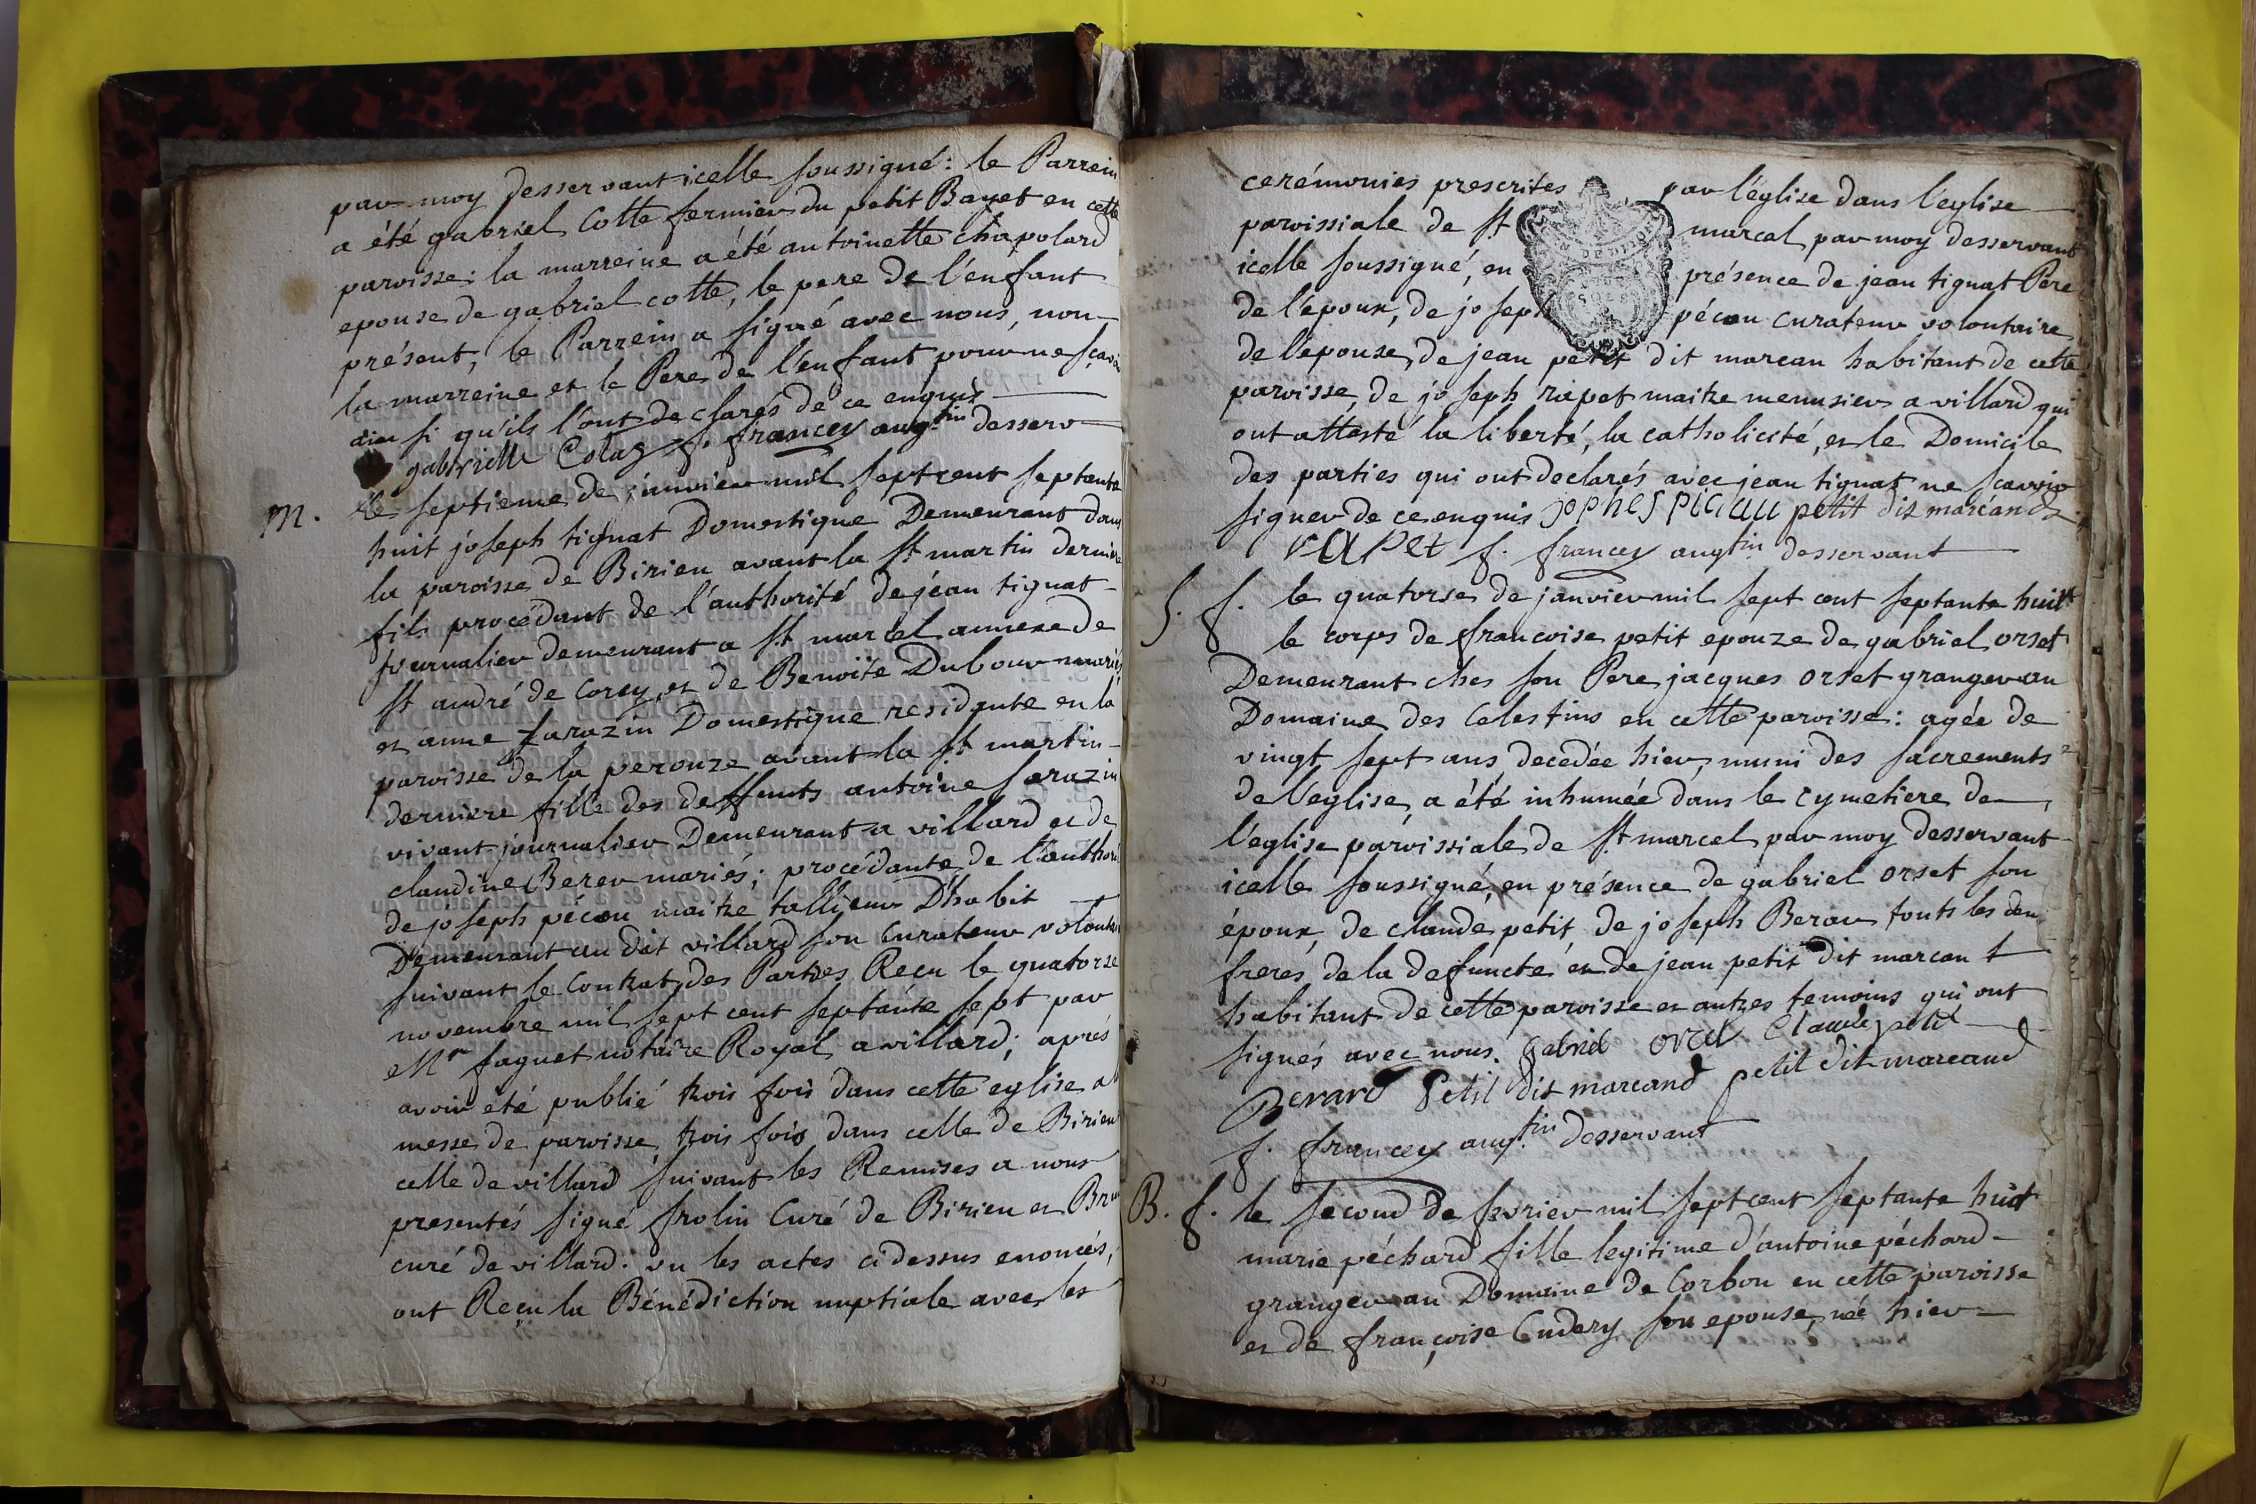 par moy desservant icelle soussigné: le Parrein
a été gabriel Cotte fermier du petit Bayet en cette
paroisse: la marreine a été antoinette chapolard
epouse de gabriel cotte, le pere de l'enfant
présent, le Parrein a signé avec nous, non
la marreine et le Pere de l'enfant pour ne sçavoir
si qu'ils l'ont declarés de ce enquis
gabrielle Cotag f. francey aug.tin desserv
M. le septieme de janvier mil sept cent septante
huit joseph tignat Domestique Demeurant dans
la paroisse de Birieu avant la st martin derniere
fils procédant de l'authorité de jéan tignat
journalier demeurant a st marcel annexe de
st andré de Corcy, et de Benoite Dubour mariés
et anne sarazin Domestique residante en la
paroisse de la perouze avant la st martin
derniere fille des deffunts antoine sarazin
vivant journalier Demeurant a villard et de
claudine Berer mariés; procédante de l'authori
de joseph pécou maitre tallieur D'habit
Demeurant au dit villard son Curateur volontai
suivant le Contrat des Parties Reçu le quatorse
novembre mil sept cent septante sept par
Mr faguet notaire Royal a villard; aprés
avoir été publié trois fois dans cette eglise a
messe de paroisse, trois fois dans celle de Birieu
celle de villard suivant les Remises a nous
presentés signé frolin Curé de Birieu et Bru
curé de villard. vu les actes cidessus enoncés,
ont Reçu la Bénédiction nuptiale avec les
cerémonies prescrites par l'église dans l'eglise
paroissiale de st marcel par moy desservant
icelle soussigné, en présence de jean tignat Pere
de l'époux, de joseph pécou curateur volontaire
de l'épouse, de jean petit dit marcan habitant de cette
paroisse, de joseph rapet maitre menusier a villard qui
ont attesté la liberté, la catholicité, et le Domicile
des parties qui ont declarés avec jean tignat ne scavoir
signer de ce enquis jophes picau petit dit marcand
rapet f. francey augtin desservant
S. f. le quatorse de janvier mil sept cent septante huit
le corps de francoise petit epouze de gabriel orset
Demeurant ches son Pere jacques orset granger au
Domaine des Celestins en cette paroisse: agée de
vingt sept ans decedée hier, muni des sacrements
de l'eglise, a été inhumée dans le cymetiere de
l'église paroissiale de st marcel par moy desservant
icelle soussigné, en présence de gabriel orset son
époux, de claude petit de joseph Berar touts les deu
freres de la defuncte et de jean petit dit marcan t
habitant de cette paroisse et autres temoins qui ont
signés avec nous. gabriel orcel Claude petit
Berard petit dit marcand petit dit marcand
f. francey aug.tin desservant
B. f. le second de fevrier mil sept cent septante huit
marie péchard fille legitime d'antoine péchard
granger au Domaine de Corbon en cette paroisse
et de françoise Cudery son epouse, née hier